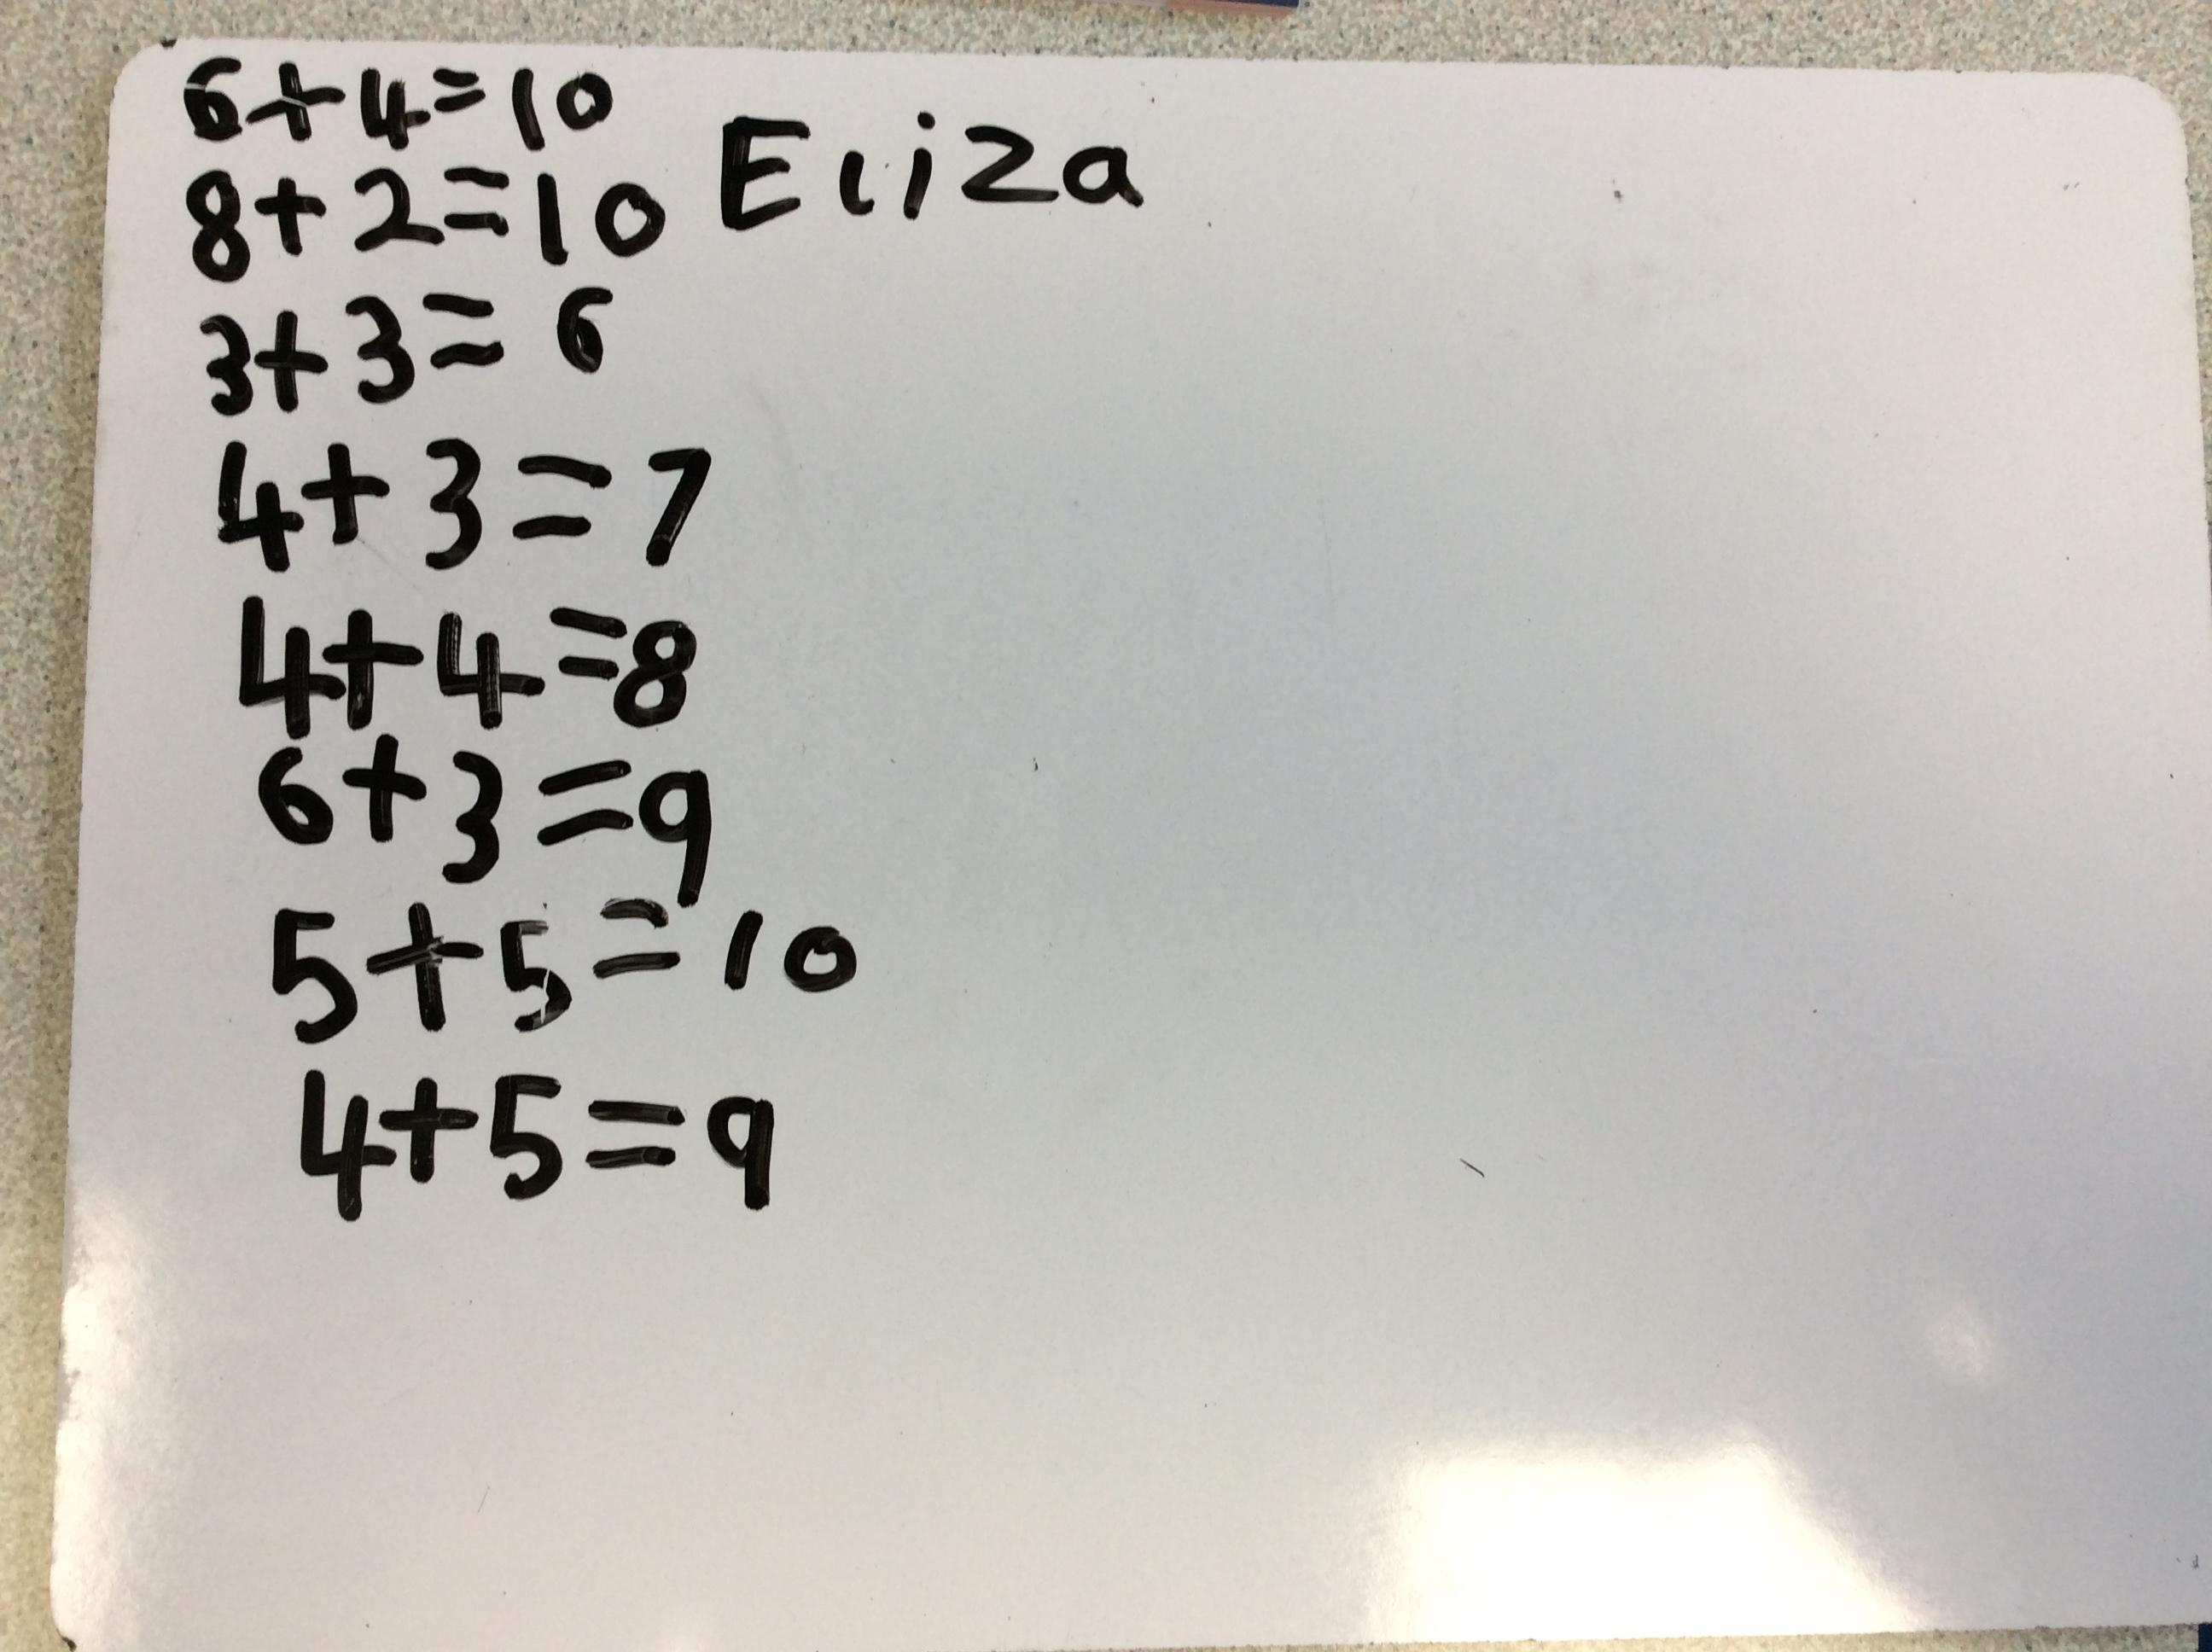 6+4=10
8+2=10 Eliza
3+3=6
4+3=7
4+4=8
6+3=9
5+5=10
4+5=9